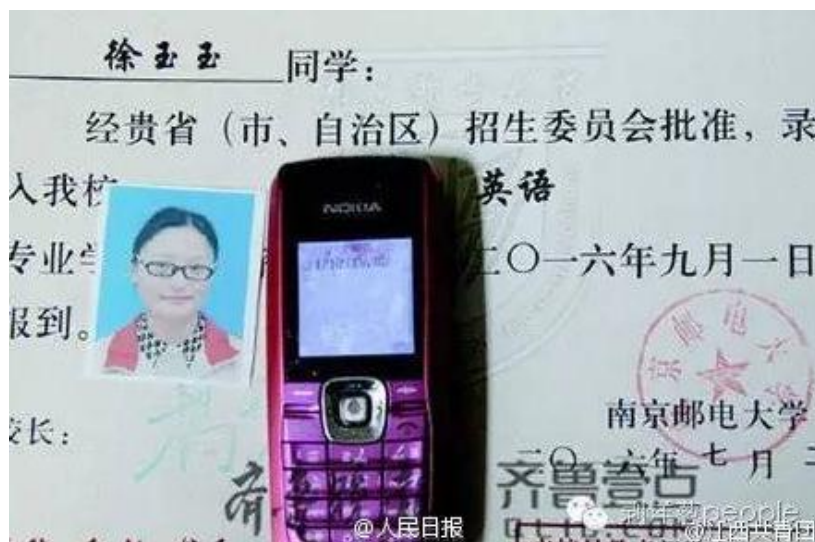 徐玉玉 同学：
经贵省（市、自治区）招生委员会批准，录
入我校 英语
专业学 二〇一六年九月一日
报到。
NOKIA
京邮电大学
南京邮电大学
校长：
二〇一六年七月二
齐鲁壹点
@人民日报
people
@江西共青团